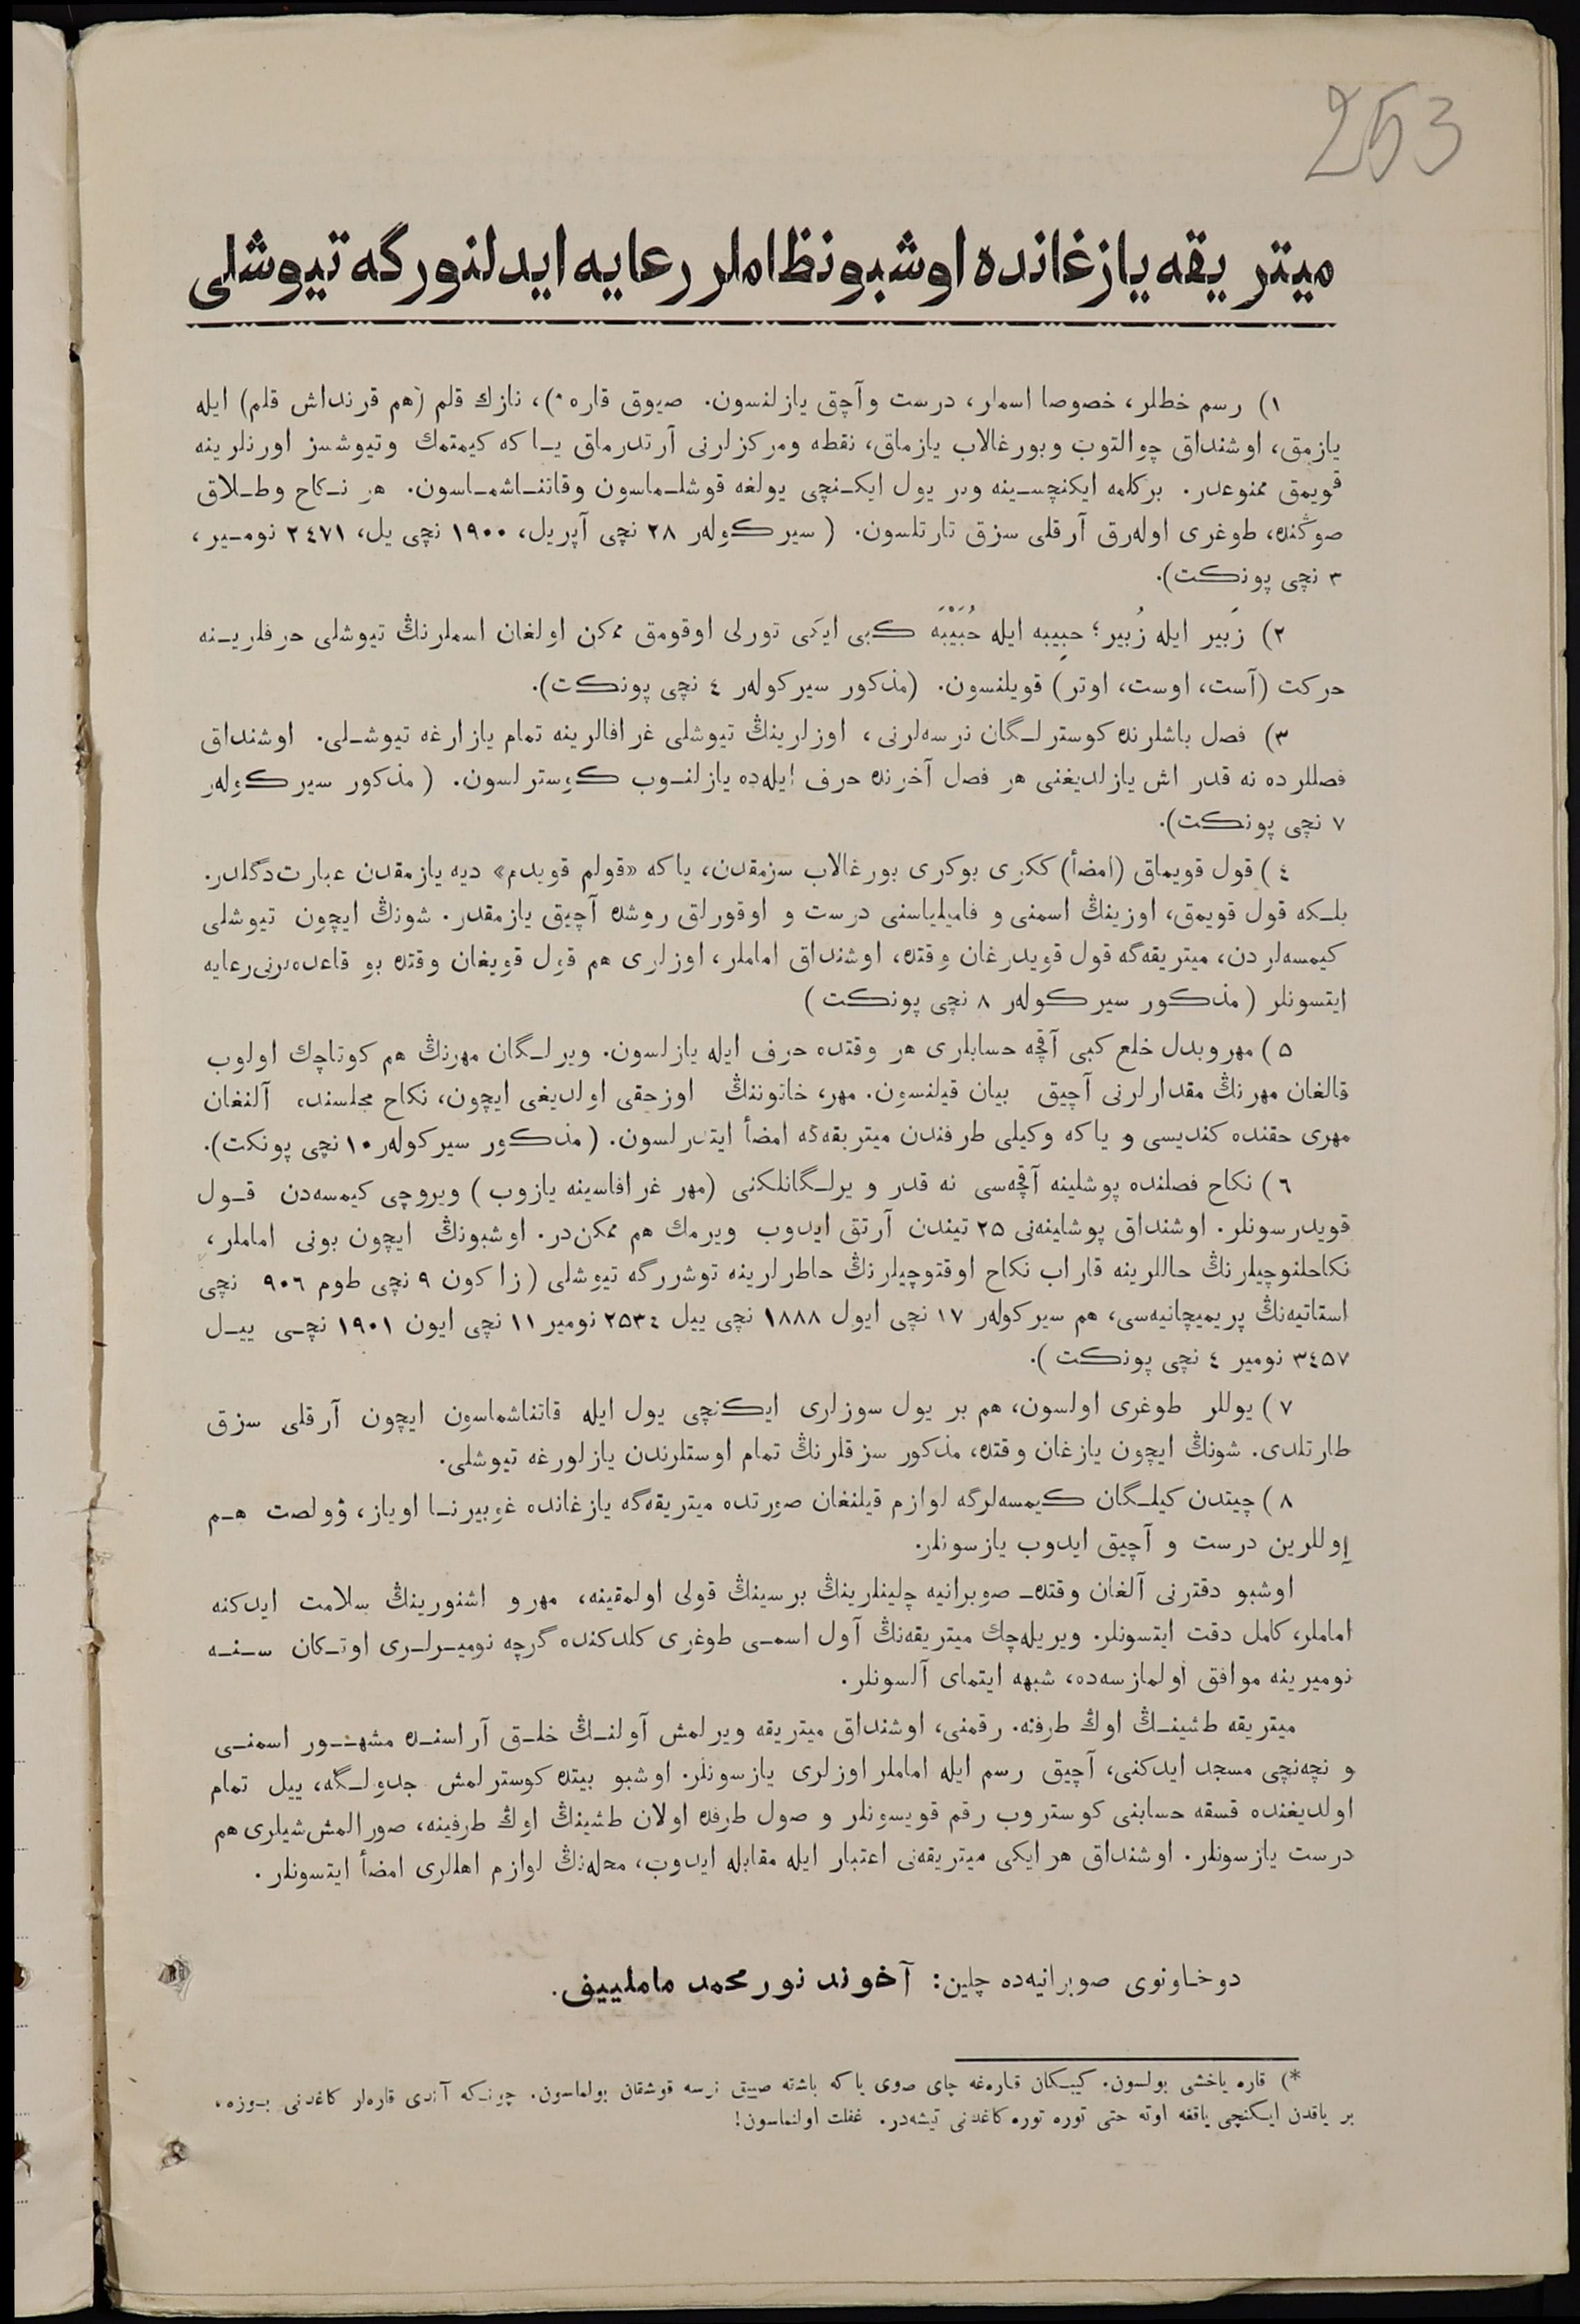 253
ميتريقه يازغانده اوشبو نظاملر رعايه ايدلنورگه تيوشلى
١) رسم خطلر، خصوصا اسملر، درست وآچق يازلنسون. صيوق قاره *)، نازك قلم (هم قرنداش قلم) ايله
يازمق، اوشنداق چوالتوب وبورغالاب يازماق، نقطه ومركزلرنى آرتدرماق يا كه كيمتمك وتيوشسز اورنلرينه
قويمق ممنوعدر. بركلمه ايكنچسينه وبر يول ايكنچى يولغه قوشلماسون وقاتناشماسون. هر نكاح وطلاق
صوڭنده، طوغرى اولەرق آرقلى سزق تارتلسون. (سيركولەر ٢٨ نچى آپريل، ١٩٠٠ نچى يل، ٢٤٧١ نومير،
٣ نچى پونكت).
٢) زَبير ايله زُبير؛ حبِيبه ايله حُبَيْبَه كبى ايكى تورلى اوقومق ممكن اولغان اسملرنڭ تيوشلى حرفلرينه
حركت (آست، اوست، اوتر) قويلنسون. (مذكور سيركولەر ٤ نچى پونكت).
٣) فصل باشلرنده كوسترلگان نرسەلرنى، اوزلرينڭ تيوشلى غرافالرينه تمام يازارغه تيوشلى. اوشنداق
فصللرده نه قدر اش يازلديغنى هر فصل آخرنده حرف ايلەده يازلنوب كوسترلسون. (مذكور سيركولەر
٧ نچى پونكت).
٤) قول قويماق (امضأ) ككرى بوكرى بورغالاب سزمقدن، ياكه «قولم قويدم» ديه يازمقدن عبارت دگلدر.
بلكه قول قويمق، اوزينڭ اسمنى و فاميلياسنى درست و اوقورلق روشده آچيق يازمقدر. شونڭ ايچون تيوشلى
كيمسەلردن، ميتريقەگه قول قويدرغان وقتده، اوشنداق اماملر، اوزلرى هم قول قويغان وقتده بو قاعدەلرنى رعايه
ايتسونلر (مذكور سيركولەر ٨ نچى پونكت)
٥) مهر وبدل خلع كبى آقچه حسابلرى هر وقتده حرف ايله يازلسون. ويرلگان مهرنڭ هم كوتاچك اولوب
قالغان مهرنڭ مقدارلرنى آچيق بيان قيلنسون. مهر، خاتوننڭ اوزحقى اولديغى ايچون، نكاح مجلسنده، آلنغان
مهرى حقنده كنديسى و ياكه وكيلى طرفندن ميتريقەگه امضأ ايتدرلسون. (مذكور سيركولەر ١٠ نچى پونكت).
٦) نكاح فصلنده پوشلينه آقچەسى نه قدر ويرلگانلكنى (مهر غرافاسينه يازوب) ويروچى كيمسەدن قول
قويدرسونلر. اوشنداق پوشلينەنى ٢٥ تيندن آرتق ايدوب ويرمك هم ممكن در. اوشبونڭ ايچون بونى اماملر،
نكاحلنوچيلرنڭ حاللرينه قاراب نكاح اوقتوچيلرنڭ خاطرلرينه توشررگه تيوشلى (زاكون ٩ نچى طوم ٩٠٦ نچى
استاتيەنڭ پريميچانيەسى، هم سيركولەر ١٧ نچى ايول ١٨٨٨ نچى ييل ٢٥٣٤ نومير ١١ نچى ايون ١٩٠١ نچى ييل
٣٤٥٧ نومير ٤ نچى پونكت).
٧) يوللر طوغرى اولسون، هم بر يول سوزلرى ايكنچى يول ايله قاتناشماسون ايچون آرقلى سزق
طارتلدى. شونڭ ايچون يازغان وقتده، مذكور سزقلرنڭ تمام اوستلرندن يازلورغه تيوشلى.
٨) چيتدن كيلگان كيمسەلرگه لوازم قيلنغان صورتده ميتريقەگه يازغانده غوبيرنا اوياز، ۋولصت هم
اوللرين درست و آچيق ايدوب يازسونلر.
اوشبو دفترنى آلغان وقتده صوبرانيه چلينلرينڭ برسينڭ قولى اولمقينه، مهر و اشنورينڭ سلامت ايدكنه
اماملر، كامل دقت ايتسونلر. ويريلەچك ميتريقەنڭ آول اسمى طوغرى كلدكنده گرچه نوميرلرى اوتكان سنه
نوميرينه موافق اولمازسەده، شبهه ايتماى آلسونلر.
ميتريقه طشينڭ اوڭ طرفنه. رقمنى، اوشنداق ميتريقه ويرلمش آولنڭ خلق آراسنده مشهور اسمنى
و نچەنچى مسجد ايدكنى، آچيق رسم ايله اماملر اوزلرى يازسونلر. اوشبو بيتده كوسترلمش جدولگه، ييل تمام
اولديغنده قسقه حسابنى كوستروب رقم قويسونلر و صول طرفده اولان طشينڭ اوڭ طرفينه، صورالمش شيلرى هم
درست يازسونلر. اوشنداق هر ايكى ميتريقەنى اعتبار ايله مقابله ايدوب، محلەنڭ لوازم اهللرى امضأ ايتسونلر.
دوخاونوى صوبرانيەده چلين: آخوند نورمحمد ماملييف.
*) قاره ياخشى بولسون. كيبكان قارەغه چاى صوى ياكه باشقه صييق نرسه قوشقان بولماسون. چونكه آندى قارەلر كاغدنى بوزه،
بر ياقدن ايكنچى ياققه اوته حتى توره توره كاغدنى تيشەدر. غفلت اولنماسون!